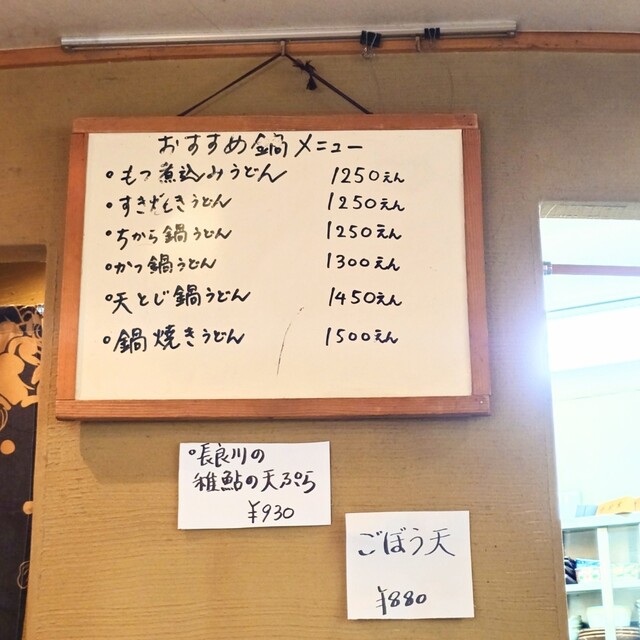 おすすめ鍋メニュー
・もつ煮込みうどん 1250えん
・すき焼きうどん 1250えん
・ちから鍋うどん 1250えん
・かつ鍋うどん 1300えん
・天とじ鍋うどん 1450えん
・鍋焼きうどん 1500えん
・長良川の
稚鮎の天ぷら
¥930
ごぼう天
¥880